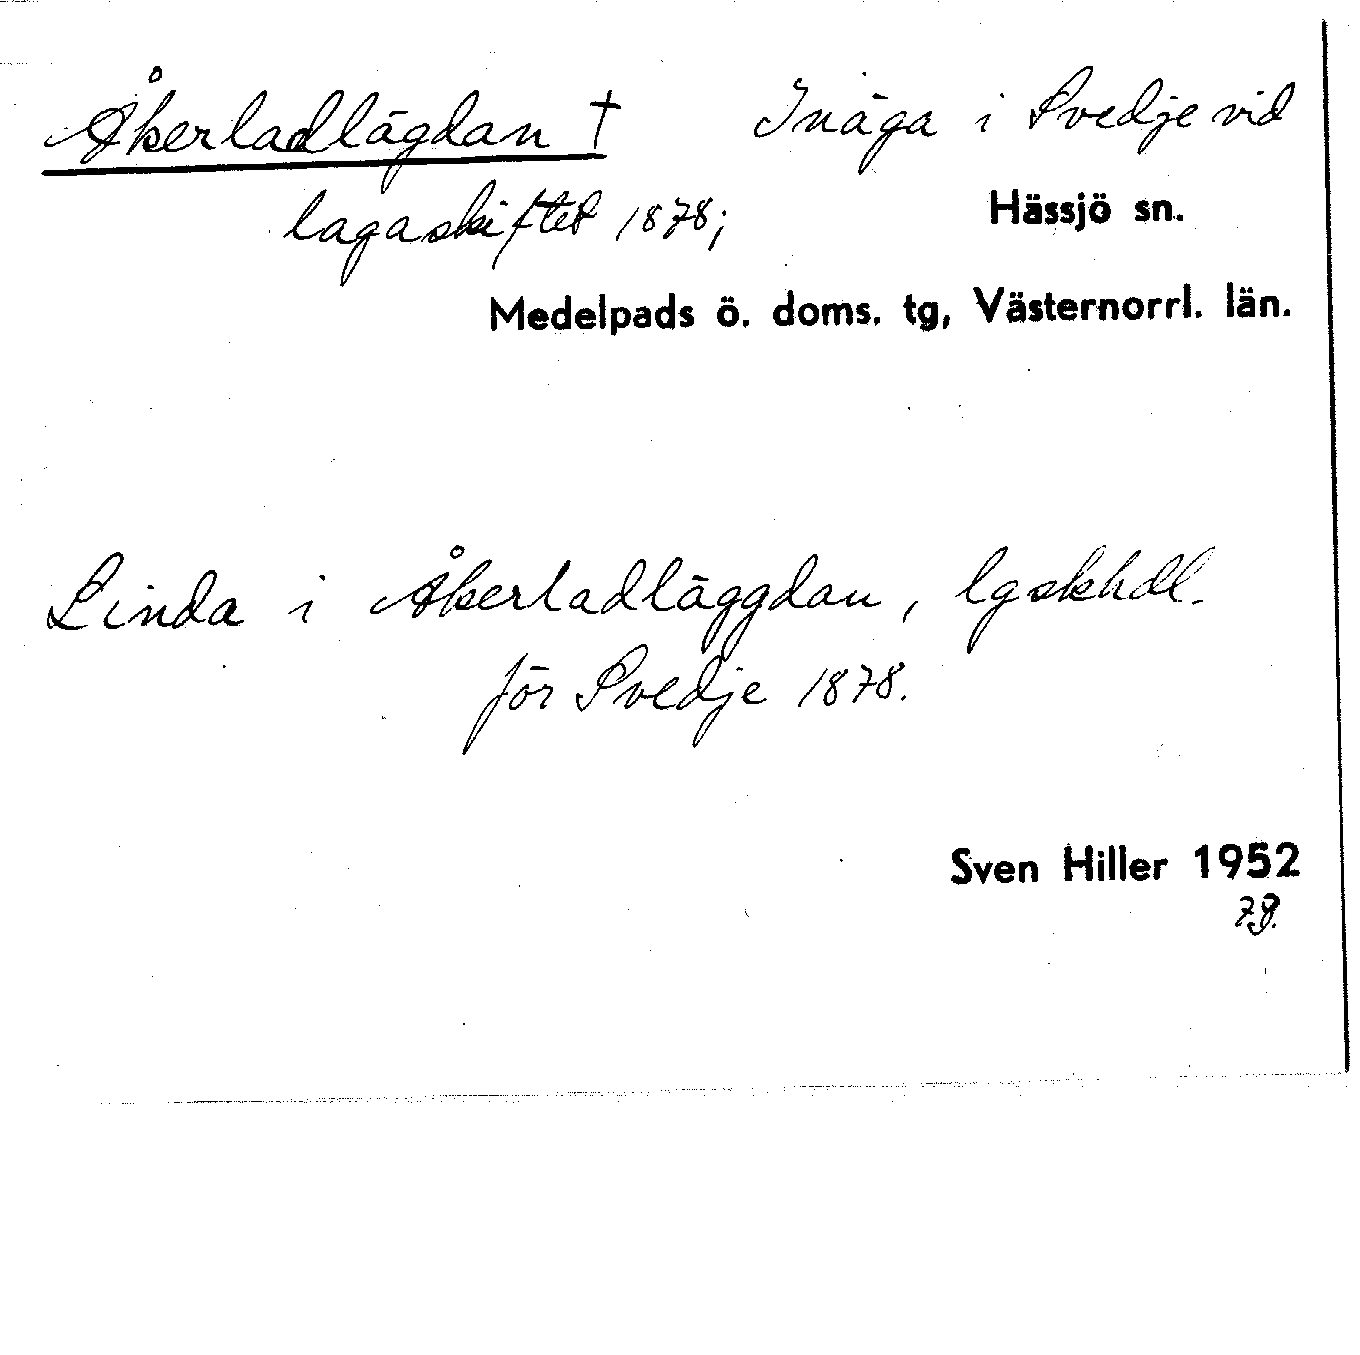 Åkerladlägdan † Inäga i Svedje vid
lagaskiftet 1878; Hässjö sn.
Medelpads ö. doms. tg, Västernorrl. län.
Linda i Åkerladläggdan, lgskhdl.
för Svedje 1878.
Sven Hiller 1952